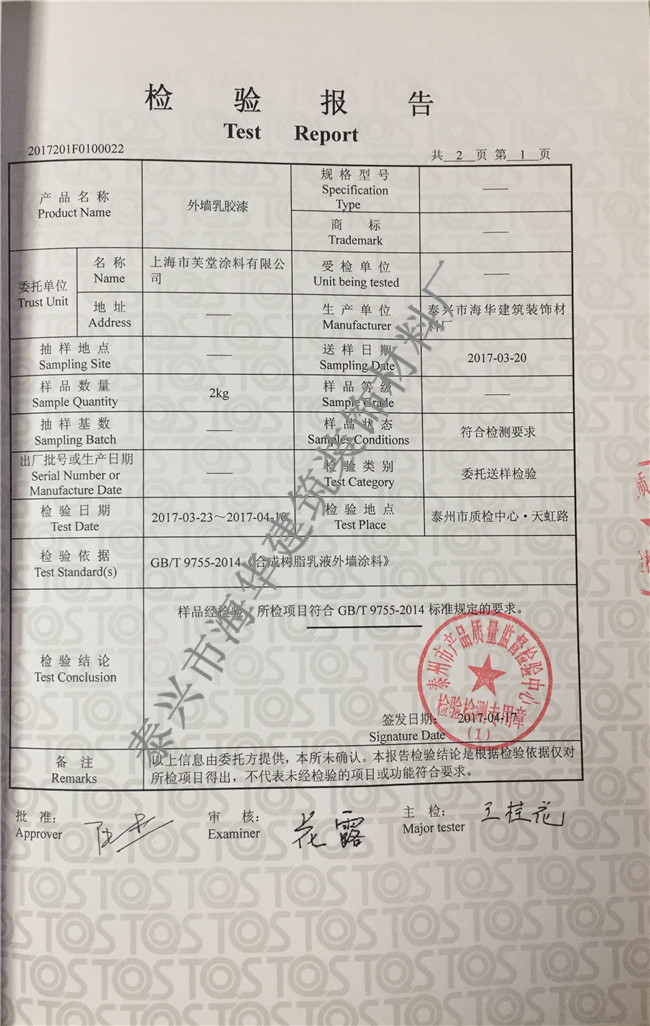 检 验 报 告
Test Report
2017201F0100022
共 2 页 第 1 页
产 品 名 称
Product Name
外墙乳胶漆
规 格 型 号
Specification
Type
——
商 标
Trademark
——
委托单位
Trust Unit
名 称
Name
上海市芙堂涂料有限公
司
受 检 单 位
Unit being tested
——
地 址
Address
——
生 产 单 位
Manufacturer
泰兴市海华建筑装饰材
料厂
抽 样 地 点
Sampling Site
——
送 样 日 期
Sampling Date
2017-03-20
样 品 数 量
Sample Quantity
2kg
样 品 等 级
Sample Grade
——
抽 样 基 数
Sampling Batch
——
样 品 状 态
Samples Conditions
符合检测要求
出厂批号或生产日期
Serial Number or
Manufacture Date
——
检 验 类 别
Test Category
委托送样检验
检 验 日 期
Test Date
2017-03-23～2017-04-10
检 验 地 点
Test Place
泰州市质检中心·天虹路
检 验 依 据
Test Standard(s)
GB/T 9755-2014《合成树脂乳液外墙涂料》
检 验 结 论
Test Conclusion
样品经检验，所检项目符合 GB/T 9755-2014 标准规定的要求。
泰州市产品质量监督检验中心
检验检测专用章
（1）
签发日期： 2017-04-17
Signature Date
备 注
Remarks
以上信息由委托方提供，本所未确认。本报告检验结论是根据检验依据仅对
所检项目得出，不代表未经检验的项目或功能符合要求。
批 准：
Approver
审 核：
Examiner
花露
主 检：
Major tester
王桂花
泰兴市海华建筑装饰材料厂